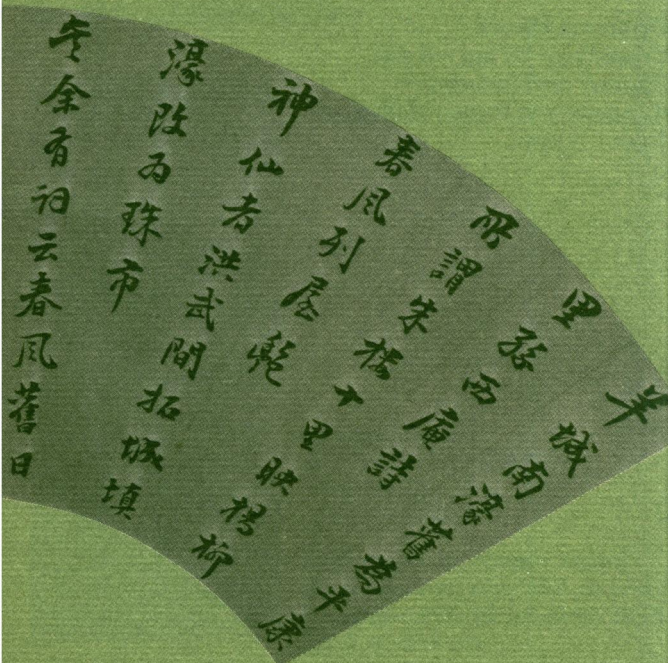 羊城南濠舊為平康
里孫西庵詩
所謂朱樓十里映楊柳
春風列屋艷
神仙者洪武間拓城填
濠改為珠市
矣余有詞云春風舊日